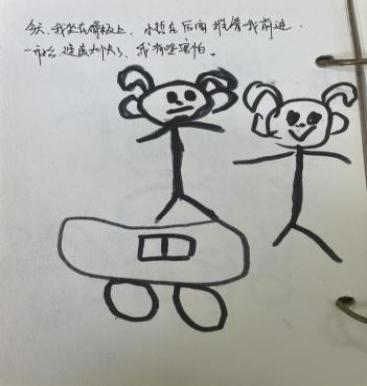 今天，我坐在滑板上，小哲在后面推着我前进。
一开始，速度太快了，我有些害怕。